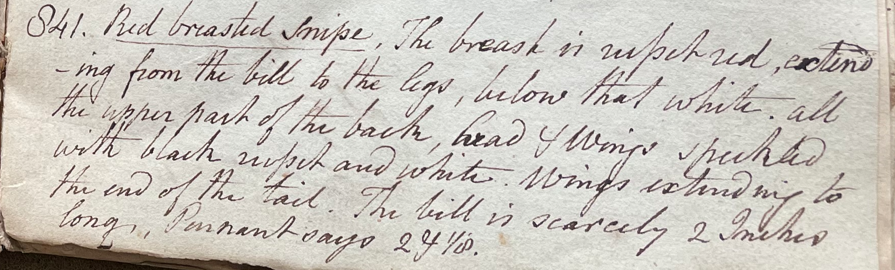 841. Red breasted Snipe. The breast is russet red, extend
-ing from the bill to the legs, below that white. all
the upper part of the back, head & Wings speckled
with black russet and white. Wings extending to
the end of the tail. The bill is scarcely 2 Inches
long, Pennant says 2 & 1/8.